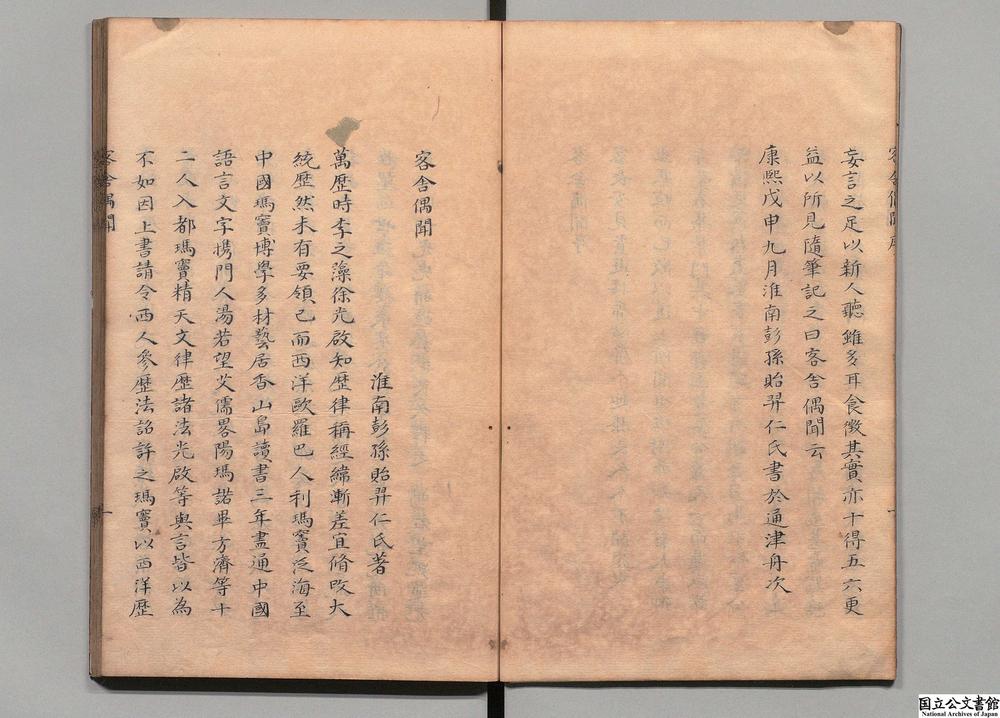 妄言之足以新人聽雖多耳食徵其實亦十得五六更
益以所見隨筆記之曰客舍偶聞云
康熙戊申九月淮南彭孫貽羿仁氏書於通津舟次
客舍偶聞
淮南彭孫貽羿仁氏著
萬歷時李之藻徐光啟知歷律稱經緯漸差宜脩改大
統歷然未有要領已而西洋歐羅巴人利瑪竇泛海至
中國瑪竇博學多材藝居香山島讀書三年盡通中國
語言文字携門人湯若望艾儒畧陽瑪諾畢方濟等十
二人入都瑪竇精天文律歷諸法光啟等與言皆以為
不如因上書請令西人參歷法詔許之瑪竇以西洋歷
客舍偶聞
一
国立公文書館
National Archives of Japan